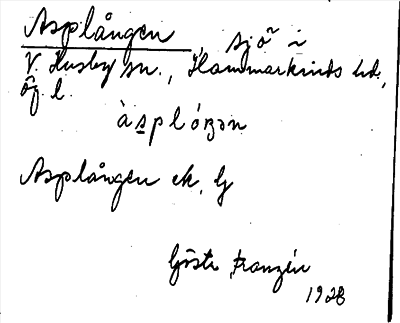 Asplången, sjö i
V. Husby sn., Hammarkinds hd.,
Ög. l.
àsplóŋən
Asplången ek. G
Gösta Franzén
1928